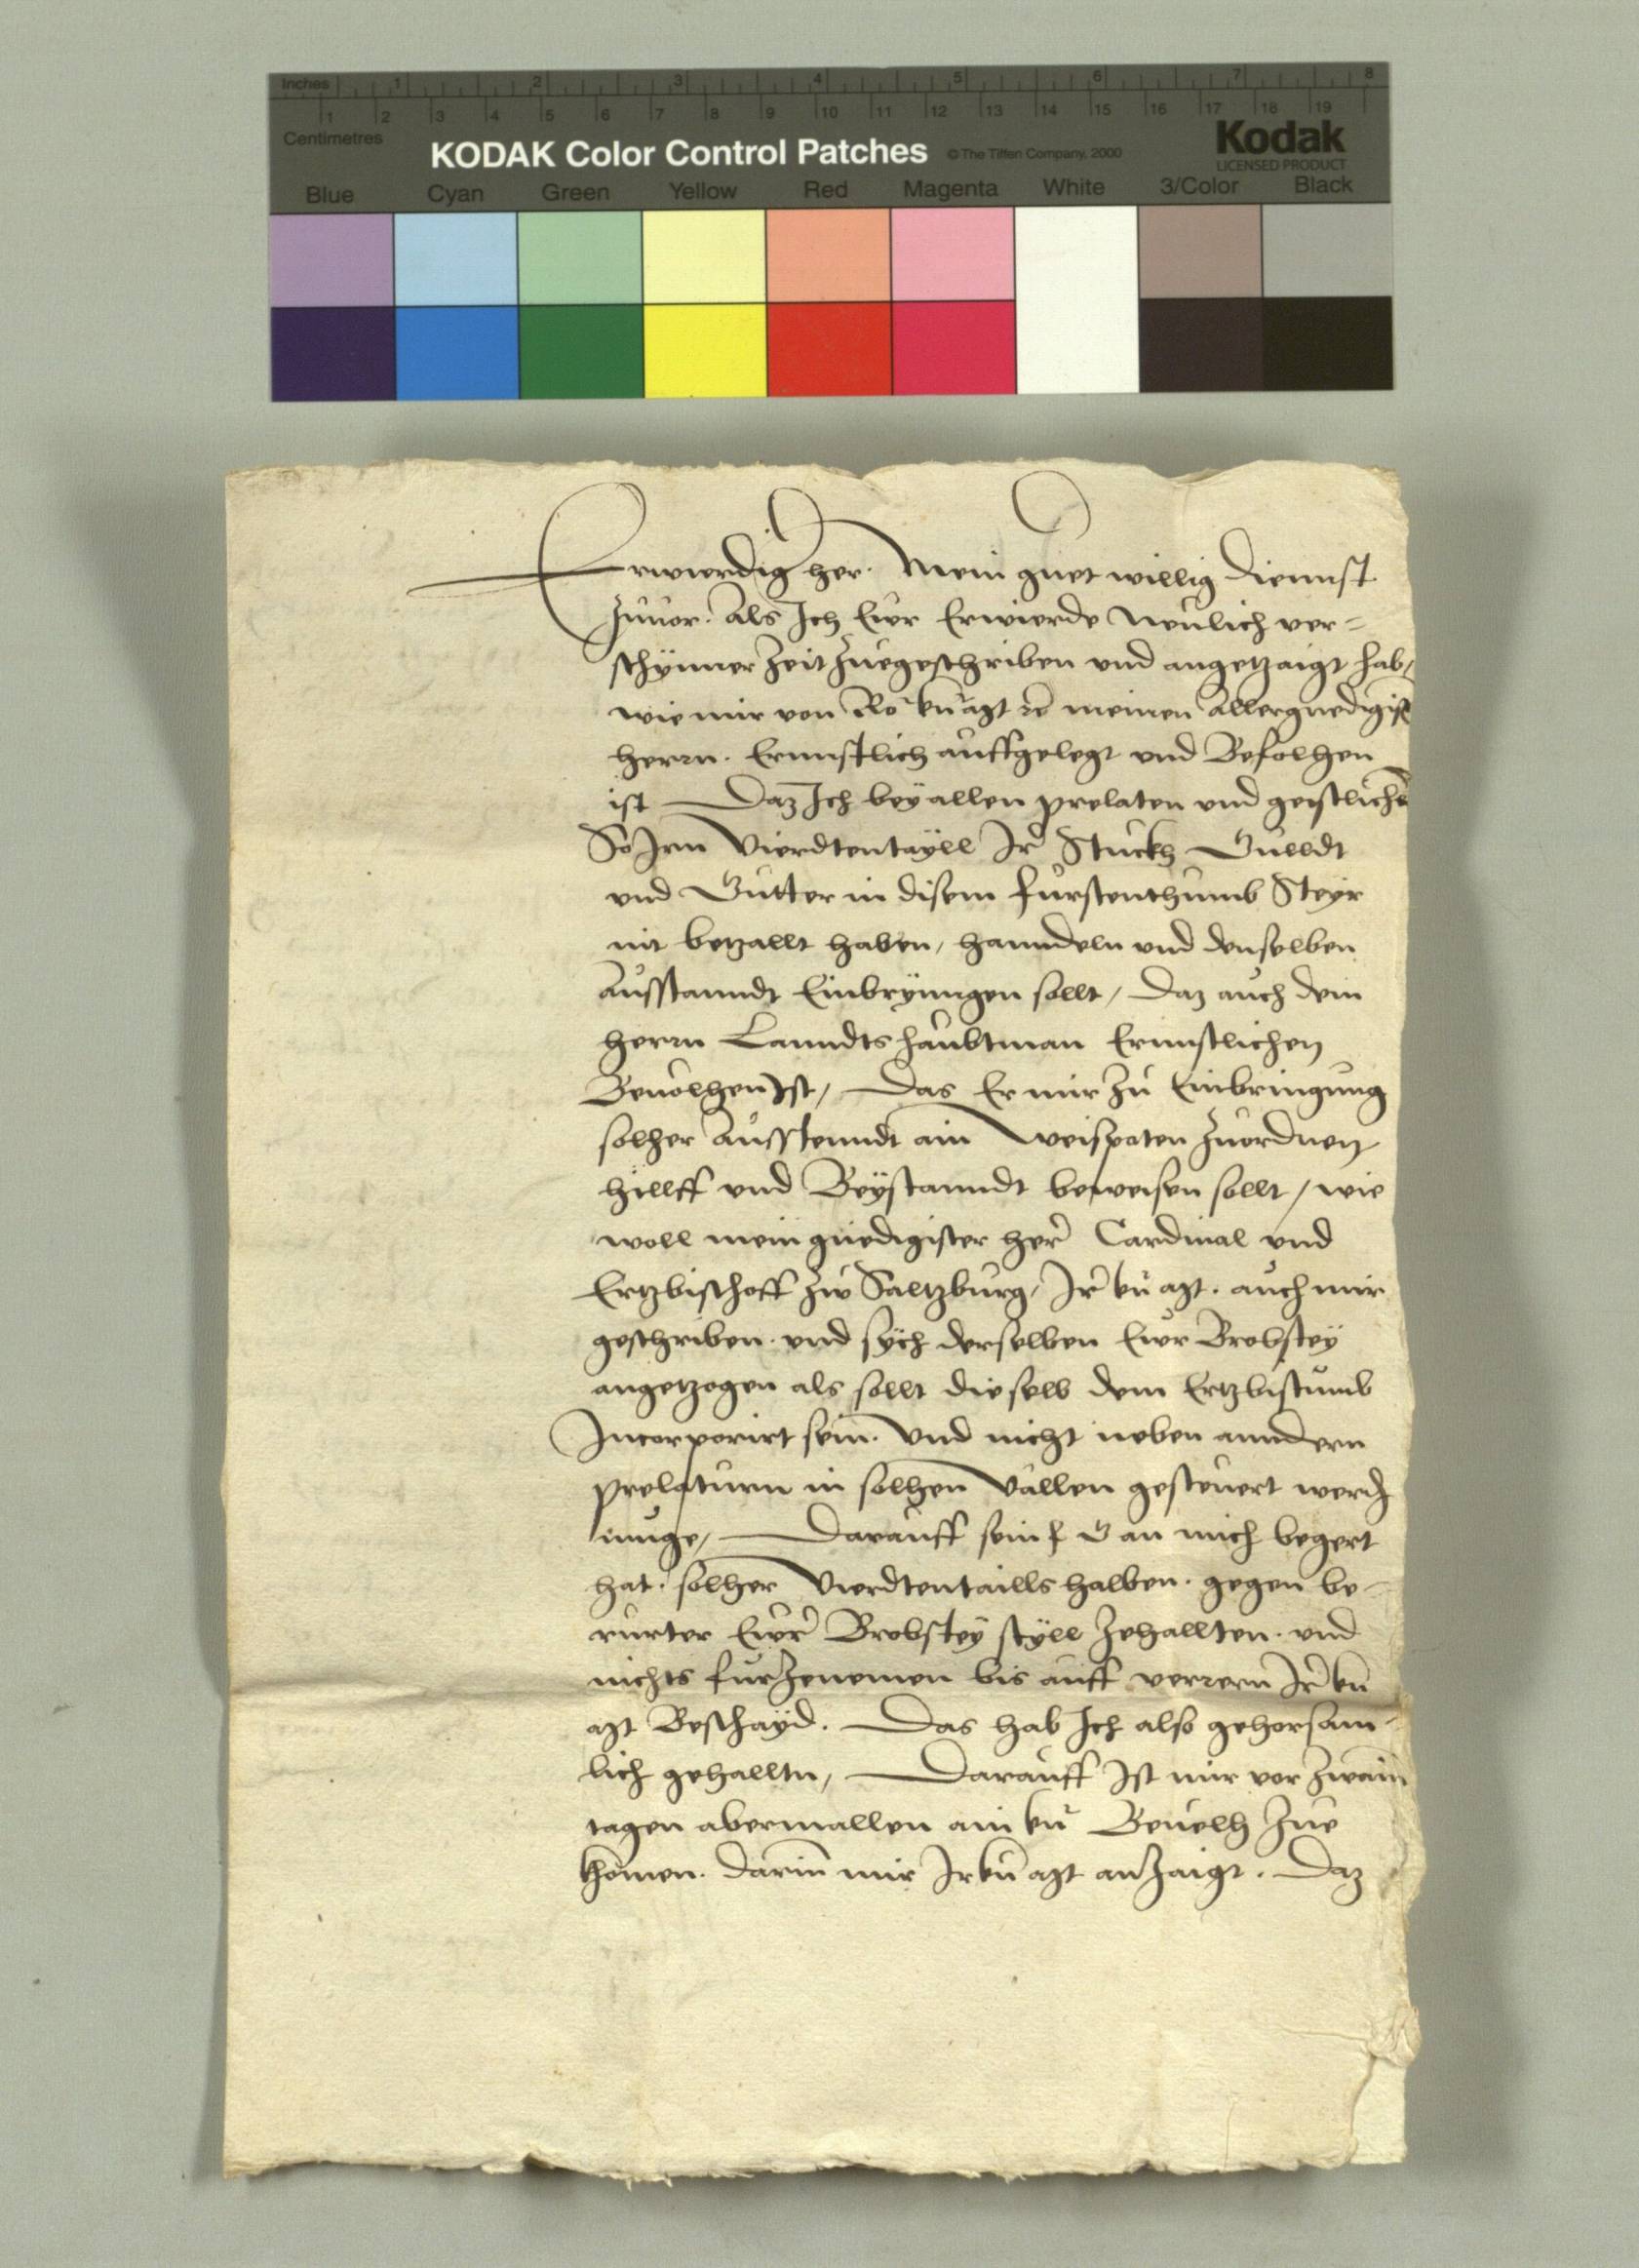 Inches 1 2 3 4 5 6 7 8
1 2 3 4 5 6 7 8 9 10 11 12 13 14 15 16 17 18 19
Centimetres
KODAK Color Control Patches © The Tiffen Company, 2000 Kodak
LICENSED PRODUCT
Blue Cyan Green Yellow Red Magenta White 3/Color Black
Erwierdig her. Mein guet willig Diennst
zuuor. Als Ich Ewr Erwierde Neulich ver=
schynner Zeit zuegeschriben vnd angetzaigt hab,
wie mir von Ro ku mgt rc meinen Allergnedigist
herrn. Ernnstlich auffgelegt vnd Befolhen
ist Daz Ich bey allen prelaten vnd geistlichn
So Irn Vierdtentayll Ir Stuckh Guelldt
vnd Gutter in disem furstenthumb Steyr
nit betzallt haben, hanndeln vnd denselben
Ausstanndt Einbrynngen sollt, Daz auch dem
herrn Lanndtshaubtman Ernnstlichen
Beuolhen Ist, Das Er mir zu Einbringung
solher Ausstenndt ain Weispoten zuordnen
hillff vnd Beystanndt beweisen sollt, wie
woll mein gnedigister her Cardinal vnd
Ertzbischoff zw Saltzburg, Ir ku mgt. auch mir
geschriben. vnd sych derselben Ewr Brobstey
angetzogen als sollt dieselb dem Ertzbistumb
Incorporirt sein. Vnd nicht neben anndern
prelaturn in solhen Vallen gesteuert werdn
muge, Darauff sein f G an mich begert
hat. solher Vierdtentaills halben. gegen be=
rurter Ewr Brobstey styll zehallten. vnd
nichts furzenemen bis auff verrern Ir ku
mgt Beschayd. Das hab Ich also gehorsam=
lich gehalltn, Darauff Ist mir vor zwain
tagen abermallen ain ku Beuelh zue
khomen. Darin mir Ir ku mgt anzaigt. Daz